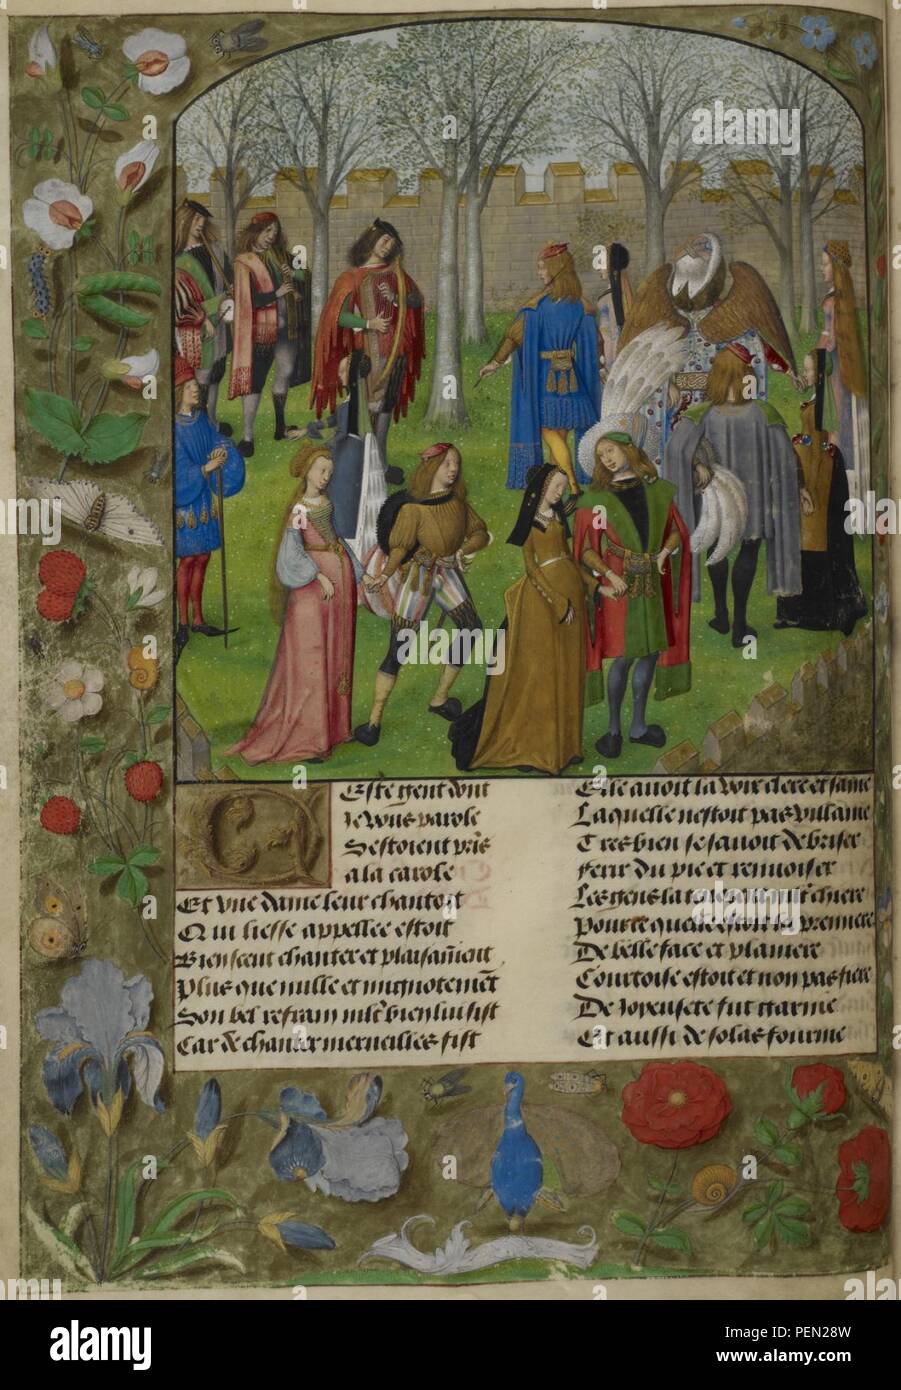 Ceste gent dont
Je vous parole
Sestoient pris
a la carole
Et une dame leur chantoit
Qui liesse appellee estoit
Bien sceut chanter et plaisament
Plus que nulle et mignotemet
Son bel refrain mlt bien lui sist
Car de chanter merveilles fist
Elle avoit la voix clere et saine
Laquelle nestoit pas villaine
Tres bien se savoit debriser
Ferir du pie et renvoiser
Les gens la mlt chiere
Pource quelle estoit la premiere
De belle face et planiere
Courtoise estoit et non pas fiere
De Joyeusete fut garnie
Et aussi de solas fournie
alamy
Image ID: PEN28W
www.alamy.com